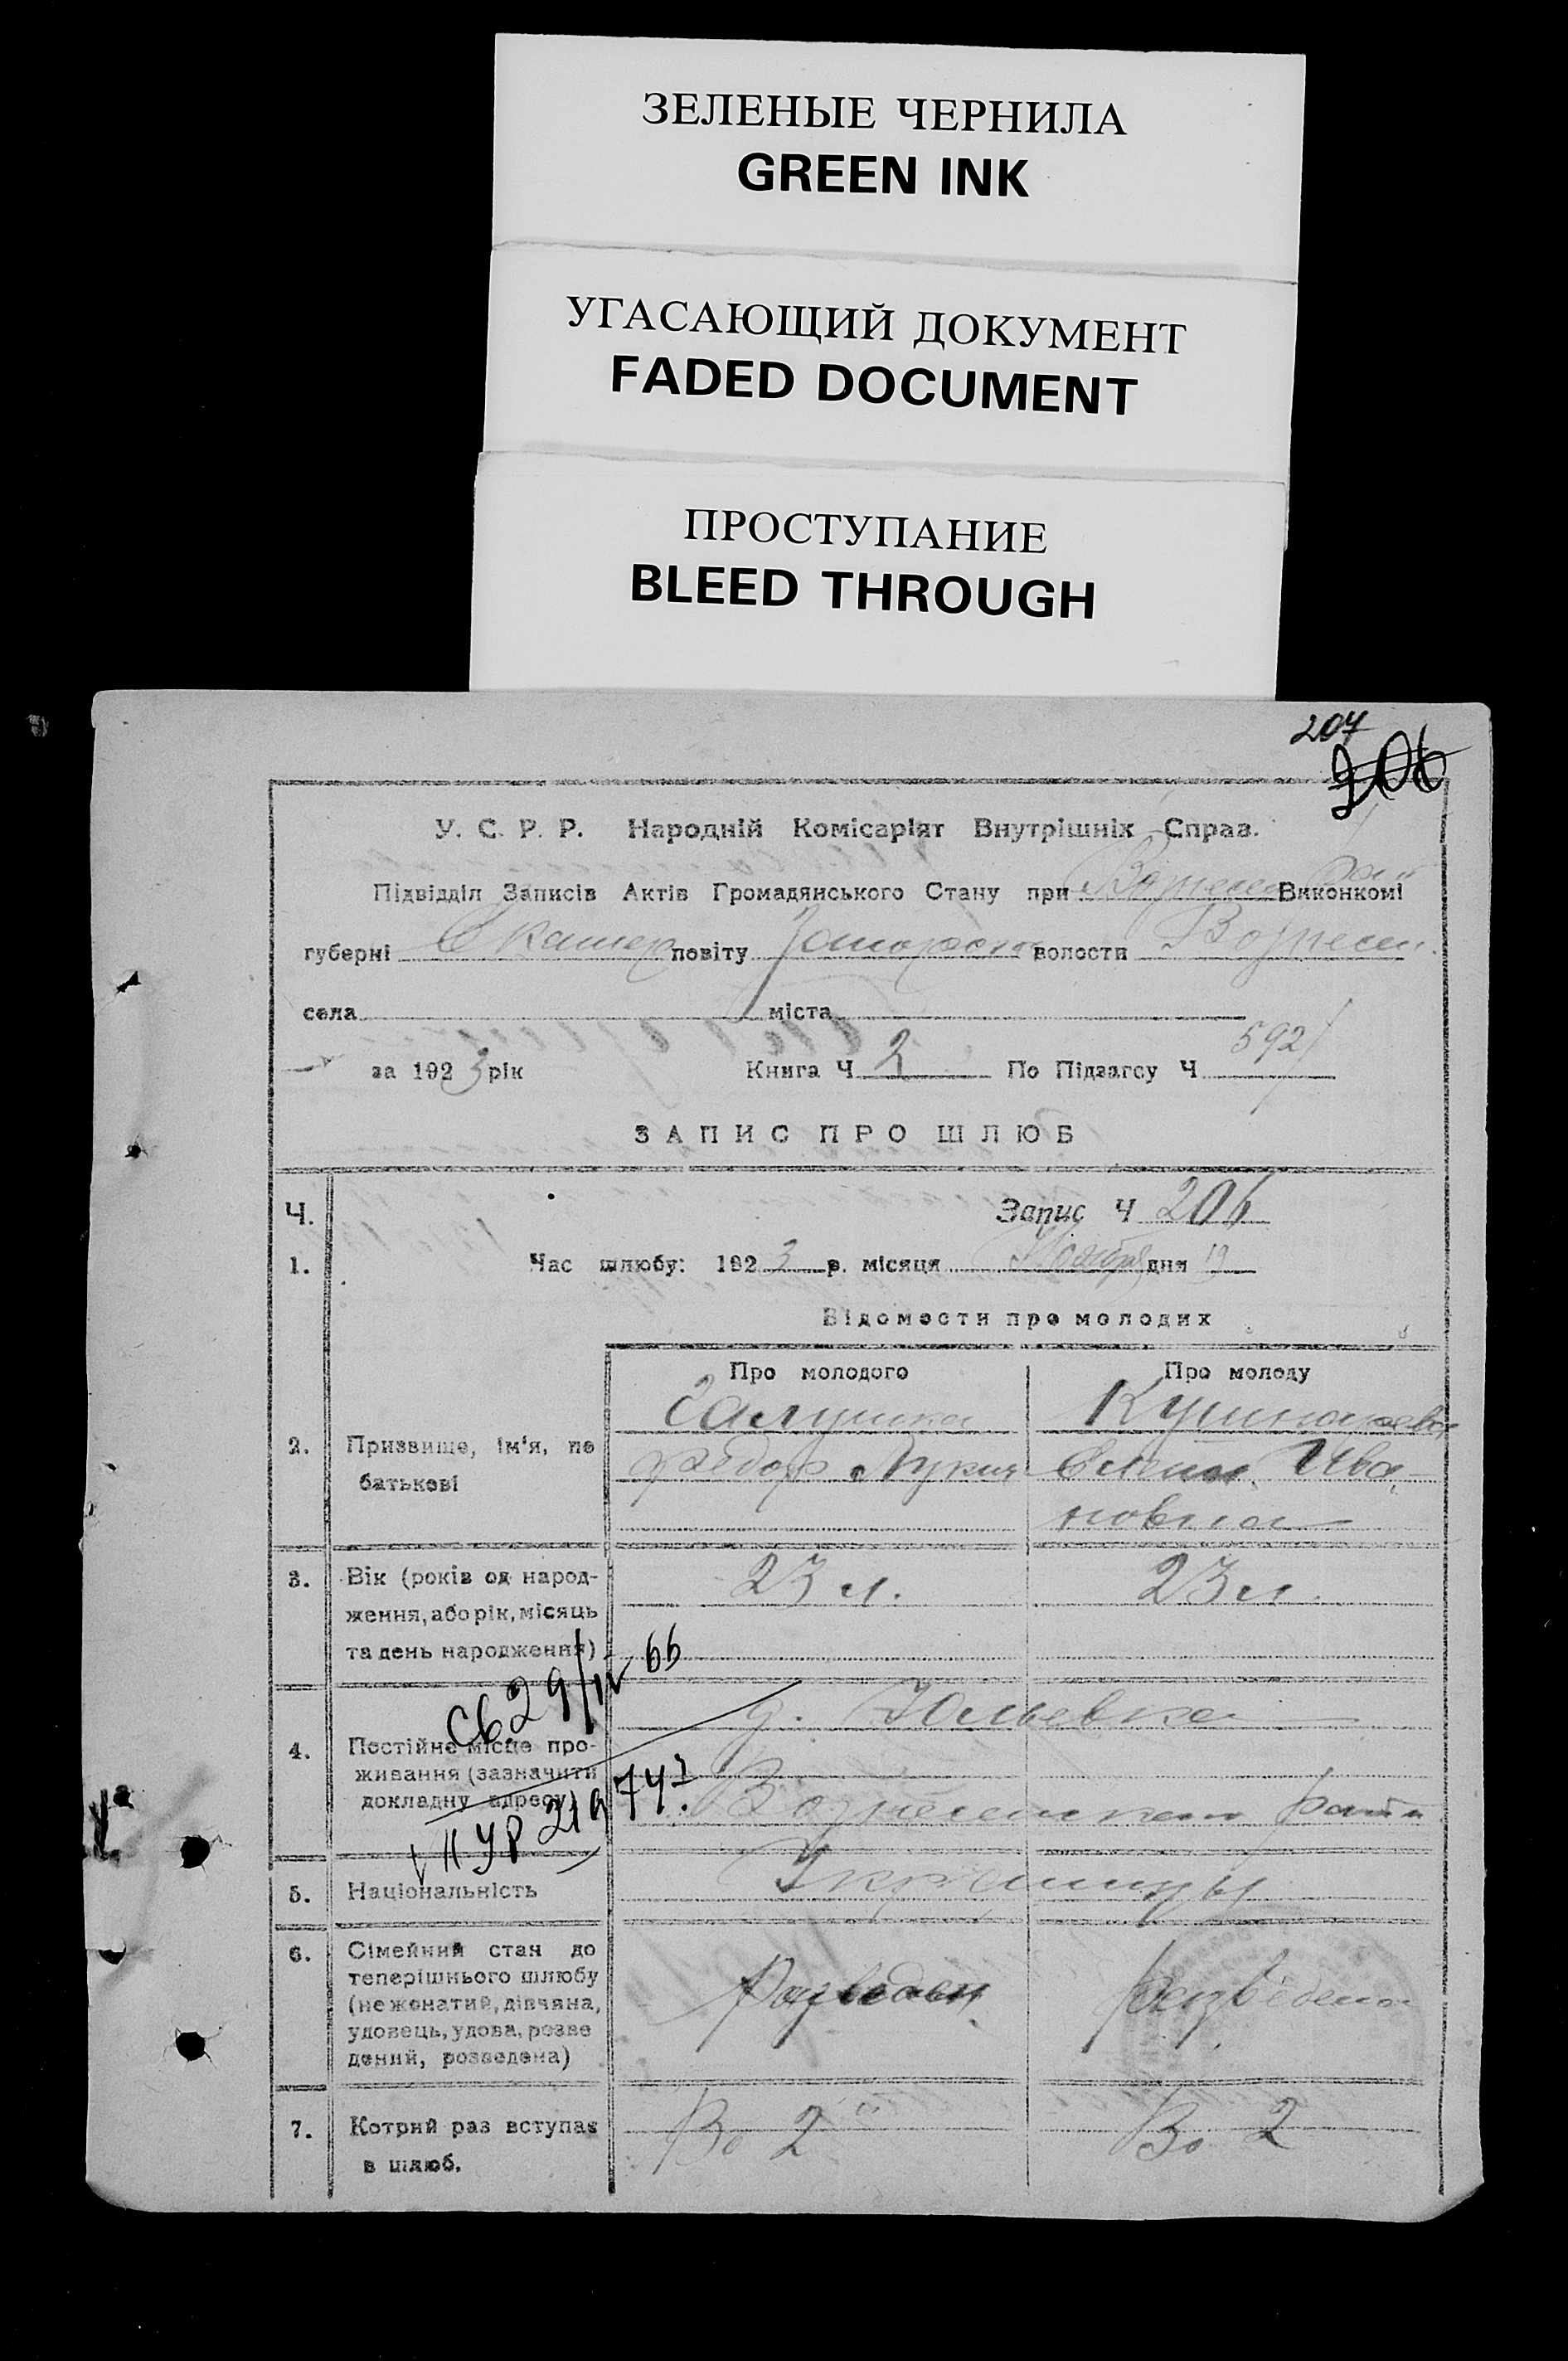 ЗЕЛЕНЫЕ ЧЕРНИЛА
GREEN INK
УГАСАЮЩИЙ ДОКУМЕНТ
FADED DOCUMENT
ПРОСТУПАНИЕ
BLEED THROUGH
207
206
У. С. Р. Р. Народній Комісаріят Внутрішніх Справ.
Підвідділ Записів Актів Громадянського Стану при Вознесен Рай Виконкомі
губерні Екатер повіту волости Вознесен.
села міста
за 1923 рік Книга Ч 2 По Підзагсу Ч 592
ЗАПИС ПРО ШЛЮБ
Ч. Запис Ч 206
1. Час шлюбу: 1923 р. місяця Ноября дня 19
Відомости про молодих
Про молодого Про молоду
Галушка
2. Призвище, ім'я, по батькові
Федор Ива-
новна
3. Вік (років од народ-
ження, або рік, місяць
та день народження)
23 л. 23 л.
Св. 29/IV 66
4. Постійне місце про-
живання (зазначити
докладну адресу)
Юльевка
Вознесенского
II УР 219741
5. Національність Украинцы
6. Сімейний стан до
теперішнього шлюбу
(нежонатий, дівчина,
удовець, удова, розве
дений, розведена)
Разведен Разведена
7. Котрий раз вступає
в шлюб.
Во 2й Во 2